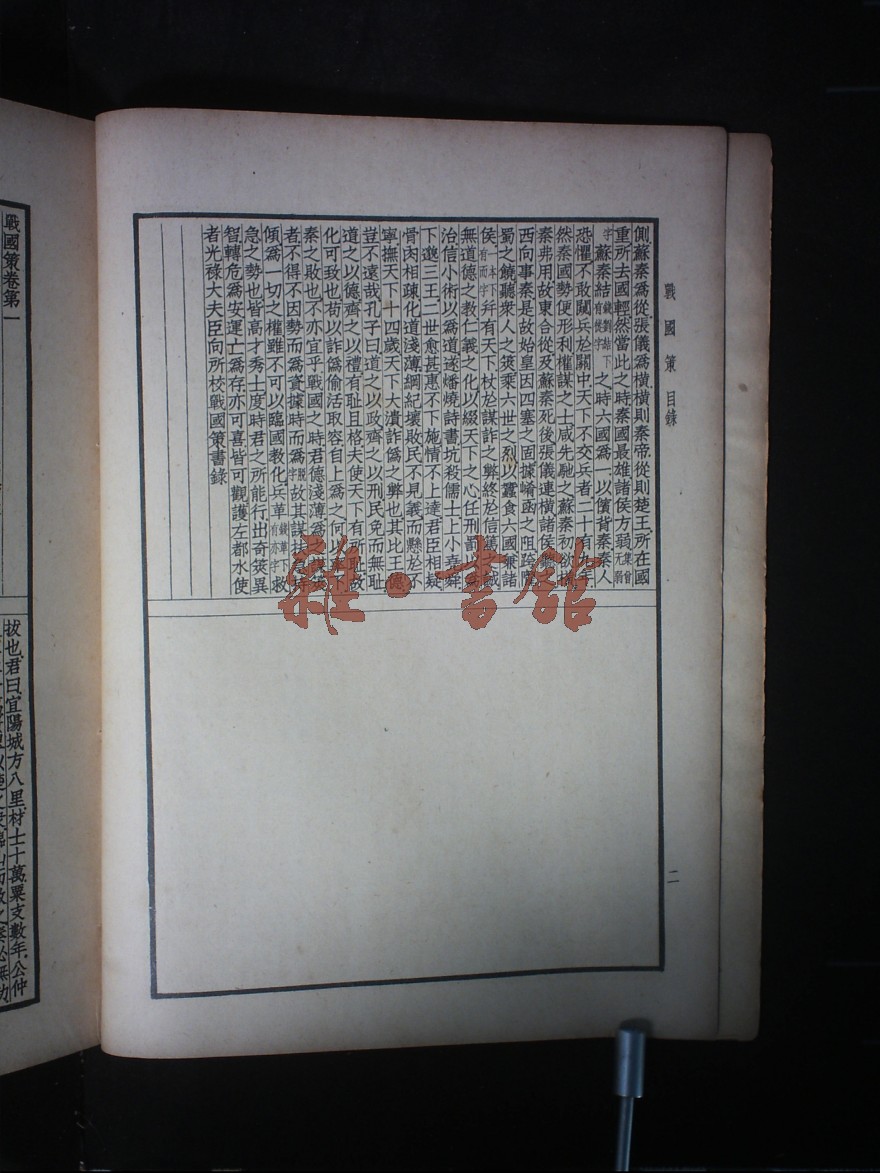 戰國策 目錄
側蘇秦爲從張儀爲橫橫則秦帝從則楚王所在國
重所去國輕然當此之時秦國最雄諸侯方弱
字蘇秦結錢劉結下有從字之時六國爲一以儐背秦秦人
恐懼不敢闚兵於關中天下不交兵者二十有九年
然秦國勢便形利權謀之士咸先馳之蘇秦初欲橫
秦弗用故東合從及蘇秦死後張儀連橫諸侯聽
西向事秦是故始皇因四塞之固據崤函之阻跨隴
蜀之饒聽衆人之筴乘六世之烈以蠶食六國兼諸
侯一本下有而字并有天下杖於謀詐之弊終於信篤
無道德之敎仁義之化以綴天下之心任刑罰以
治信小術以爲道遂燔燒詩書坑殺儒士上小堯舜
下邈三王二世愈甚惠不下施情不上達君臣相疑
骨肉相疎化道淺薄綱紀壞敗民不見義而懸於不
寧撫天下十四歲天下大潰詐僞之弊也其比王德
豈不遠哉孔子曰道之以政齊之以刑民免而無恥
道之以德齊之以禮有恥且格夫使天下有所恥故
化可致也苟以詐僞偷活取容自上爲之何以
秦之敗也不亦宜乎戰國之時君德淺薄爲之謀筴
者不得不因勢而爲資據時而爲脫字故其謀扶
傾爲一切之權雖不可以臨國敎化兵革錢革下有亦字救
急之勢也皆高才秀士度時君之所能行出奇筴異
智轉危爲安運亡爲存亦可喜皆可觀護左都水使
者光祿大夫臣向所校戰國策書錄
二
戰國策卷第一
拔也君曰宜陽城方八里材士十萬粟支數年公仲
雜·書館